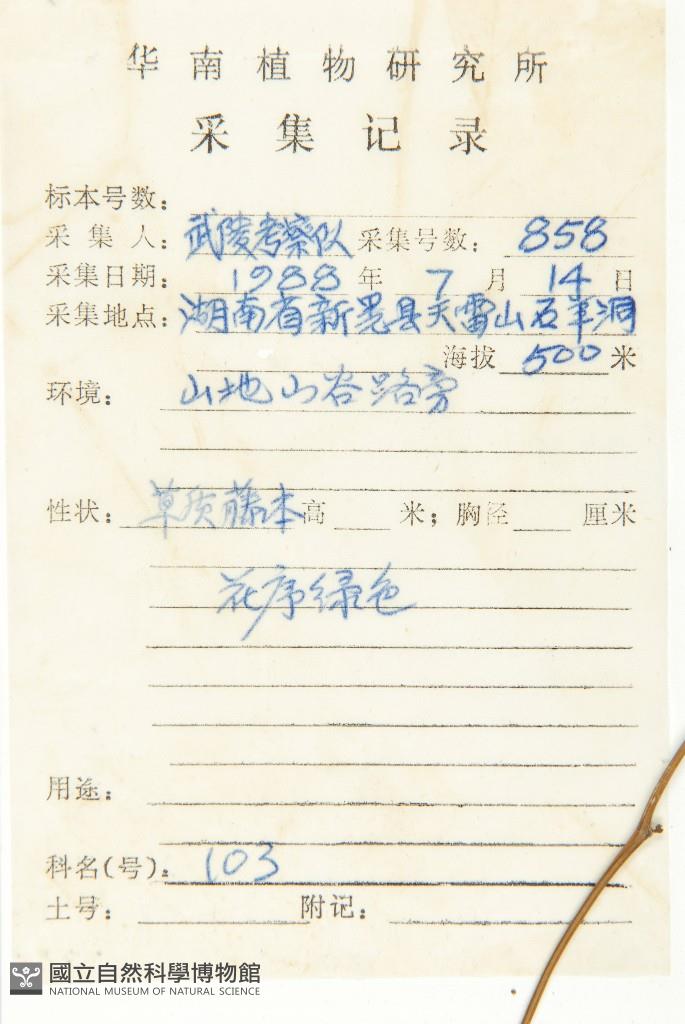 华南植物研究所
采集记录
标本号数:
采集人: 武陵考察队 采集号数: 858
采集日期: 1988 年 7 月 14 日
采集地点: 湖南省新晃县天雷山石羊洞
海拔 500 米
环境: 山地山谷路旁
性状: 草质藤本 高 米; 胸径 厘米
花序绿色
用途:
科名(号): 103
土号: 附记:
國立自然科學博物館
NATIONAL MUSEUM OF NATURAL SCIENCE